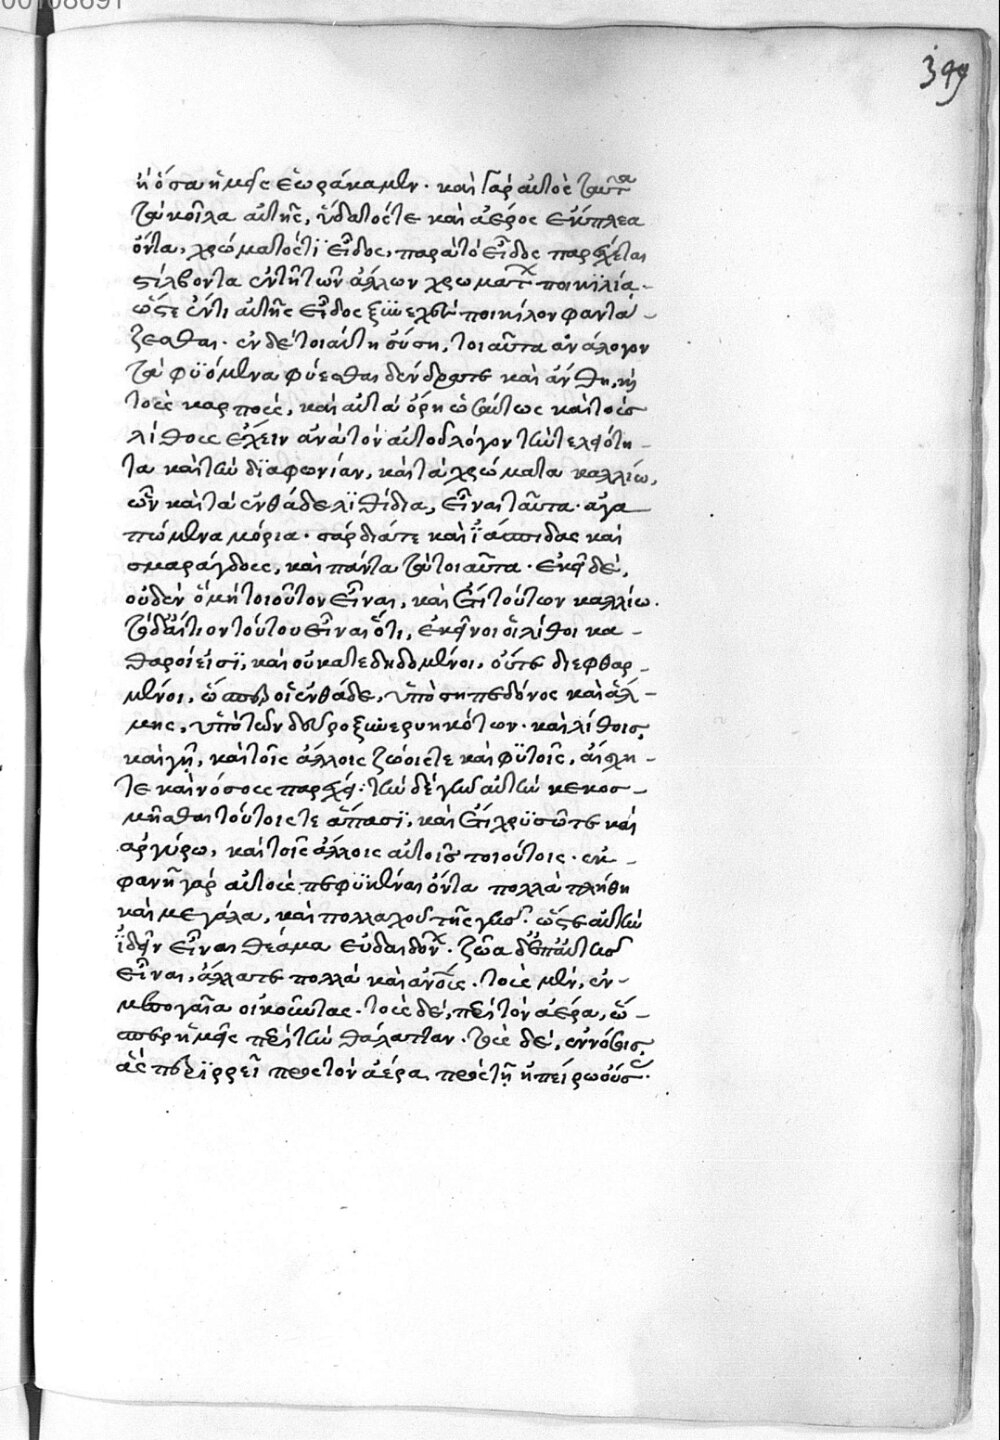 00108691
399
ἢ ὅσα ἡμεῖς ἑωράκαμεν· καὶ γὰρ αὐτὸς ταῦτα
τὰ κοῖλα αὐτῆς, ὕδατός τε καὶ ἀέρος ἔμπλεα
ὄντα, χρώματός τι εἶδος, παρὰ τὸ εἶδος παρέχεται
στίλβοντα ἐν τῇ τῶν ἄλλων χρωμάτων ποικιλίᾳ.
ὥστε ἕν τι αὐτῆς εἶδος ξυνεχὲς ποικίλον φαντά-
ζεσθαι· ἐν δὲ τοιαύτῃ οὔσῃ, τοιαῦτα ἀνάλογον
τὰ φυόμενα φύεσθαι δένδρα τε καὶ ἄνθη, καὶ
τοὺς καρποὺς, καὶ αὐτὰ ὄρη ὡσαύτως καὶ τοὺς
λίθους ἔχειν ἀνὰ τὸν αὐτὸν λόγον τὴν τελειότη-
τα καὶ τὴν διαφωνίαν, καὶ τὰ χρώματα καλλίω,
ὧν καὶ τὰ ἐνθάδε λιθίδια, εἶναι ταῦτα· ἀγα
πώμενα μόρια· σάρδιά τε καὶ ἰάσπιδας καὶ
σμαράγδους, καὶ πάντα τὰ τοιαῦτα· ἐκεῖ δὲ,
οὐδὲν ὅ μὴ τοιοῦτον εἶναι, καὶ ἔτι τούτων καλλίω.
τὸ δ' αἴτιον τούτου εἶναι ὅτι, ἐκεῖνοι οἱ λίθοι κα-
θαροί εἰσι, καὶ οὐ κατεδηδομένοι, οὔτε διεφθαρ-
μένοι, ὥσπερ οἱ ἐνθάδε, ὑπὸ σηπεδόνος καὶ ἅλ-
μης, ὑπὸ τῶν δεῦρο ξυνερυηκότων· καὶ λίθοις,
καὶ γῇ, καὶ τοῖς ἄλλοις ζώοις τε καὶ φυτοῖς, αἴσχη-
τε καὶ νόσους παρέχει· τὴν δὲ γῆν αὐτὴν κεκοσ-
μῆσθαι τούτοις τε ἅπασι, καὶ ἔτι χρυσῶ τε καὶ
ἀργύρω, καὶ τοῖς ἄλλοις αὐτοῖς τοιούτοις· ἐκ-
φανῆ γὰρ αὐτοὺς πεφυκέναι ὄντα πολλὰ πλήθη
καὶ μεγάλα, καὶ πολλαχοῦ τῆς γῆς· ὥστε αὐτὴν
ἰδεῖν εἶναι θέαμα εὐδαιμόνων· ζῶα δ' ἐπ' αὐτῆς
εἶναι, ἄλλα τε πολλὰ καὶ ἀνους. τοὺς μὲν, ἐν-
μεσογαία οἰκοῦντας· τοὺς δὲ, περὶ τὸν ἀέρα, ὥ-
σπερ ἡμεῖς περὶ τὴν θάλατταν· τοὺς δὲ, ἐν νήσοις,
ἃς περιρρεῖ πρὸς τὸν ἀέρα πρὸς τῇ ἠπείρω οὔσας·